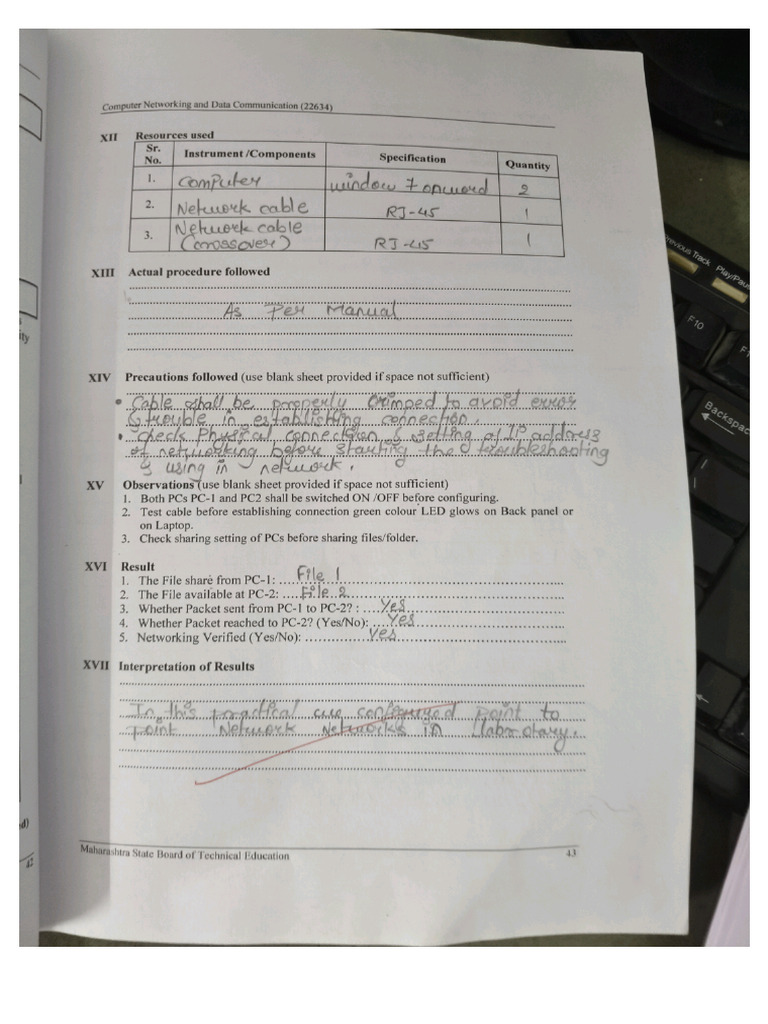 Computer Networking and Data Communication (22634)
XII Resources used
Sr. No. Instrument /Components Specification Quantity
1. Computer window 7 onword 2
2. Network cable RJ-45 1
3. Network cable (crossover) RJ-45 1
XIII Actual procedure followed
As Per Manual
XIV Precautions followed (use blank sheet provided if space not sufficient)
• Cable shall be properly Crimped to avoid error
& trouble in establishing connection.
• Check Physical connection & setting of IP address
of networking before starting the troubleshooting
& using in network.
XV Observations (use blank sheet provided if space not sufficient)
1. Both PCs PC-1 and PC2 shall be switched ON /OFF before configuring.
2. Test cable before establishing connection green colour LED glows on Back panel or
on Laptop.
3. Check sharing setting of PCs before sharing files/folder.
XVI Result
1. The File share from PC-1: File 1
2. The File available at PC-2: File 2
3. Whether Packet sent from PC-1 to PC-2? : Yes
4. Whether Packet reached to PC-2? (Yes/No): Yes
5. Networking Verified (Yes/No): Yes
XVII Interpretation of Results
In this practical we configured point to
point Network Networks in laboratary.
Maharashtra State Board of Technical Education 43
Previous Track
Play/Pau
F10
Backspac
42